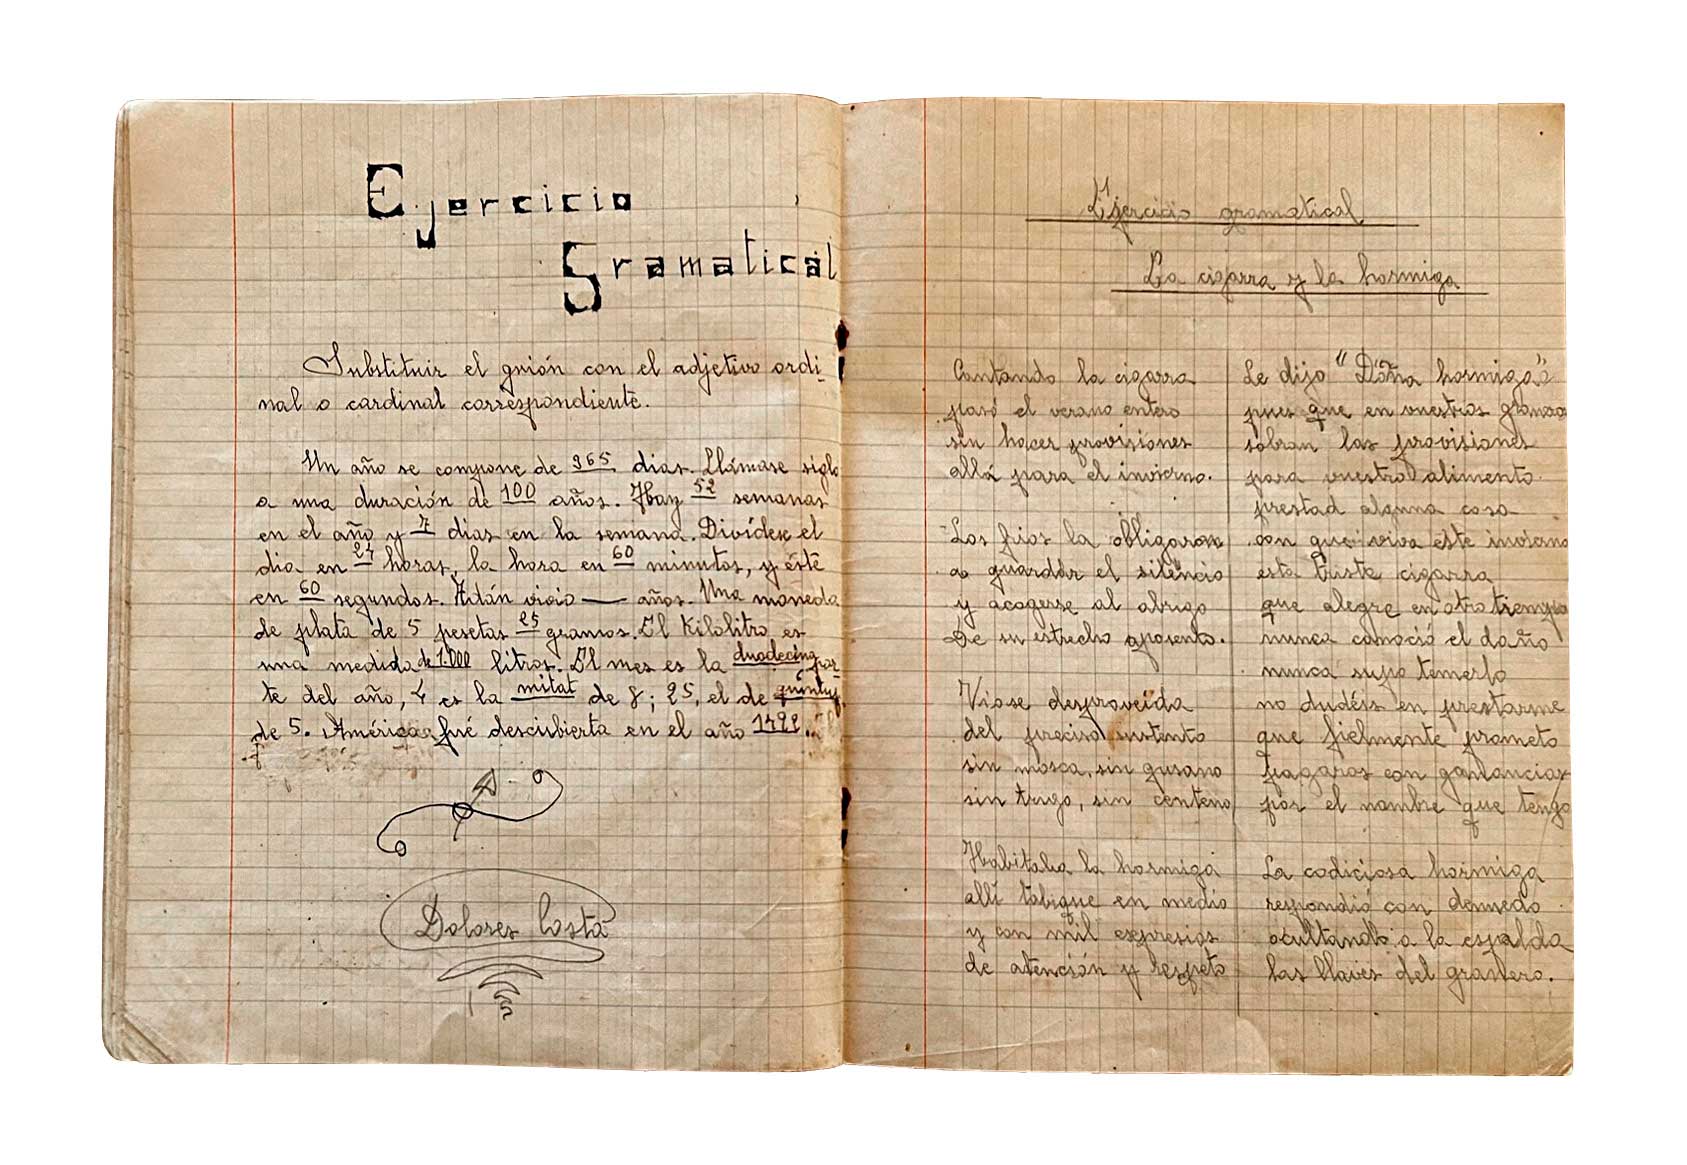 Ejercicio
Gramatical
Substituir el guión con el adjetivo ordi-
nal o cardinal correspondiente.
Un año se compone de 365 dias. Llámase siglo
a una duración de 100 años. Hay 52 semanas
en el año y 7 dias en la semana. Divídese el
dia en 24 horas, la hora en 60 minutos, y éste
en 60 segundos. Adán vivio — años. Una moneda
de plata de 5 pesetas 25 gramos. El Kilolitro es
una medida de 1.000 litros. El mes es la duodecima par-
te del año, 4 es la mitat de 8; 25, el de quintup.
de 5. América fué descubierta en el año 1492..
Dolores Costa
Ejercicio gramatical
La cigarra y la hormiga
Cantando la cigarra
pasó el verano entero
sin hacer provisiones
allá para el invierno.
Los frios la obligaron
a guardar el silencio
y acogerse al abrigo
De su estrecho aposento.
Viose desproveida
del preciso sustento
sin mosca, sin gusano
sin trigo, sin centeno
Habitaba la hormiga
allí tabique en medio
y con mil expresios
de atención y respeto
Le dijo "Doña hormiga"
pues que en vuestros graneros
sobran las provisiones
para vuestro alimento.
prestad alguna cosa
con que viva este invierno
esta triste cigarra
que alegre en otro tiempo
nunca conoció el daño
nunca supo temerlo
no dudéis en prestarme
que fielmente prometo
pagaros con ganancias
por el nombre que tengo
La codiciosa hormiga
respondió con denuedo
ocultando a la espalda
las llaves del granero.